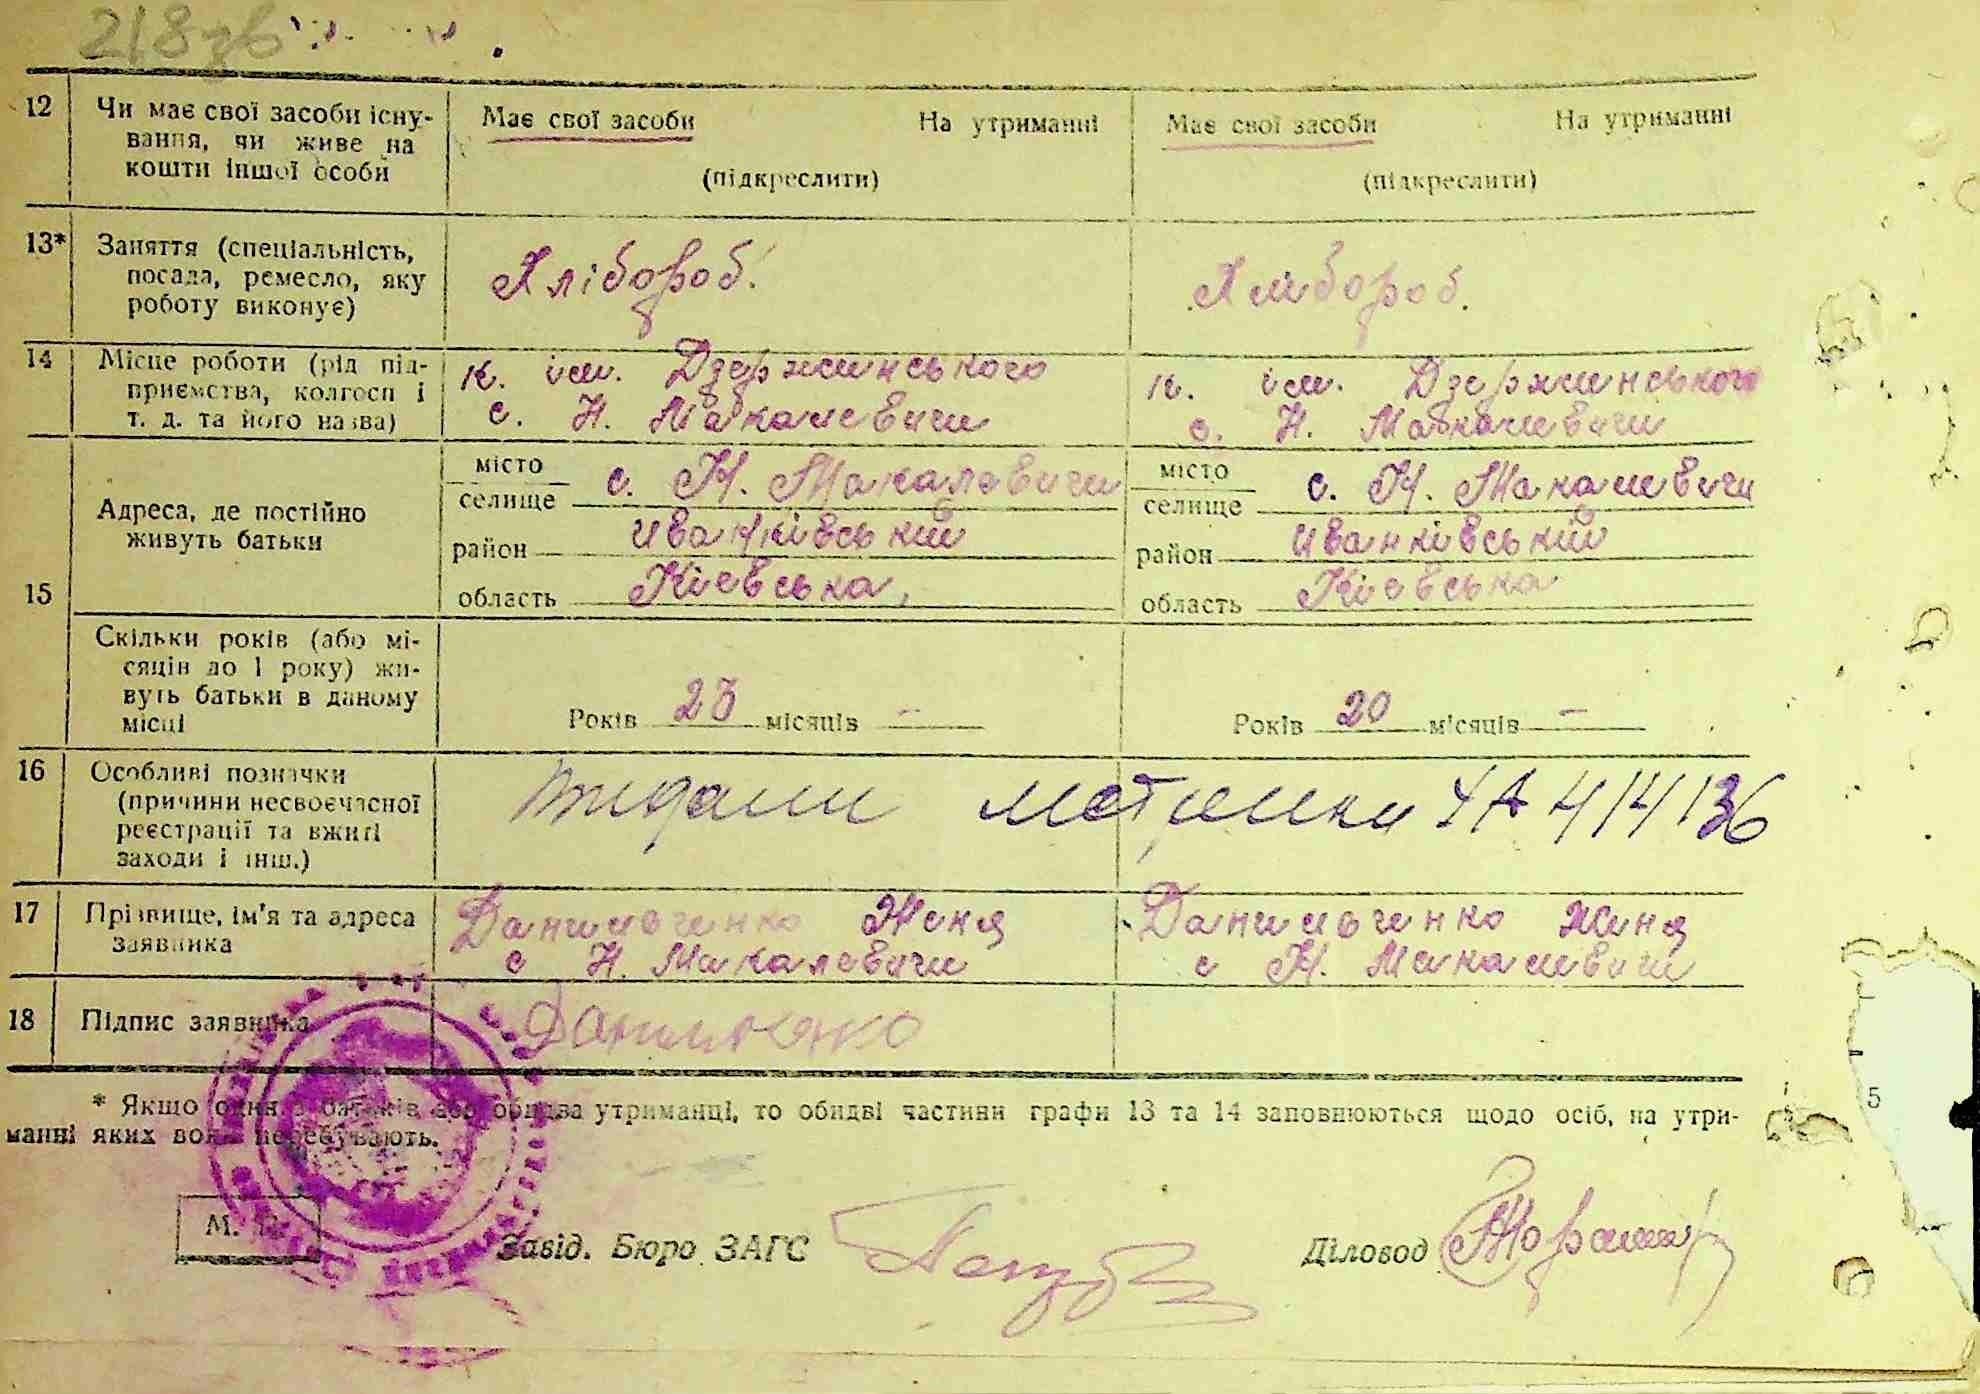 218зв
12 Чи має свої засоби існу-
вання, чи живе на
кошти іншої особи
Має свої засоби На утриманні
(підкреслити)
Має свої засоби На утриманні
(підкреслити)
13* Заняття (спеціальність,
посада, ремесло, яку
роботу виконує)
Хлібороб.
Хлібороб.
14 Місце роботи (рід під-
приємства, колгосп і
т. д. та його назва)
к. ім. Дзержинського
с. Н. Макалевичи
к. ім. Дзержинського
с. Н. Макалевичи
15
Адреса, де постійно
живуть батьки
місто
селище с. Н. Макалевичи
район Иванківський
область Кієвська,
місто
селище с. Н. Макалевичи
район Иванківський
область Кієвська
Скільки років (або мі-
сяців до 1 року) жи-
вуть батьки в даному
місці
Років 23 місяців –
Років 20 місяців –
16 Особливі позначки
(причини несвоєчасної
реєстрації та вжиті
заходи і інш.)
метрики 414136
17 Прізвище, ім'я та адреса
заявника
Данильченко Женя
с Н. Макалевичи
Данильченко Женя
с Н. Макалевичи
18 Підпис заявника
* Якщо один з батьків або обидва утриманці, то обидві частини графи 13 та 14 заповнюються щодо осіб, на утри-
манні яких вони перебувають.
5
М. П.
Завід. Бюро ЗАГС
Діловод